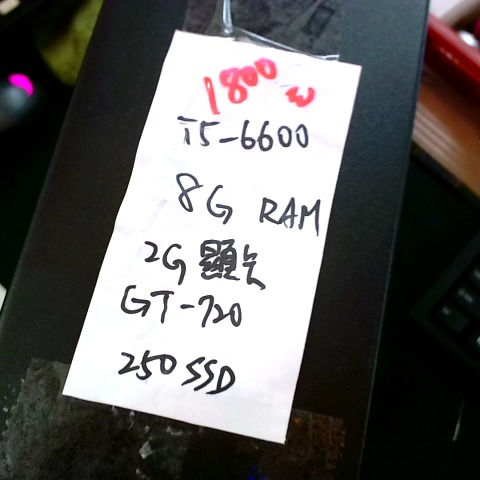 1800
I5-6600
8G RAM
2G 顯卡
GT-720
250 SSD